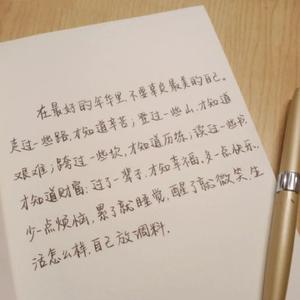 在最好的年华里,不要辜负最美的自己。
走过一些路,才知道辛苦;登过一些山,才知道
艰难;跨过一些坎,才知道历练;读过一些书,
才知道财富;过了一辈子,才知幸福,多一点快乐,
少一点烦恼,累了就睡觉,醒了就微笑,生
活怎么样,自己放调料,